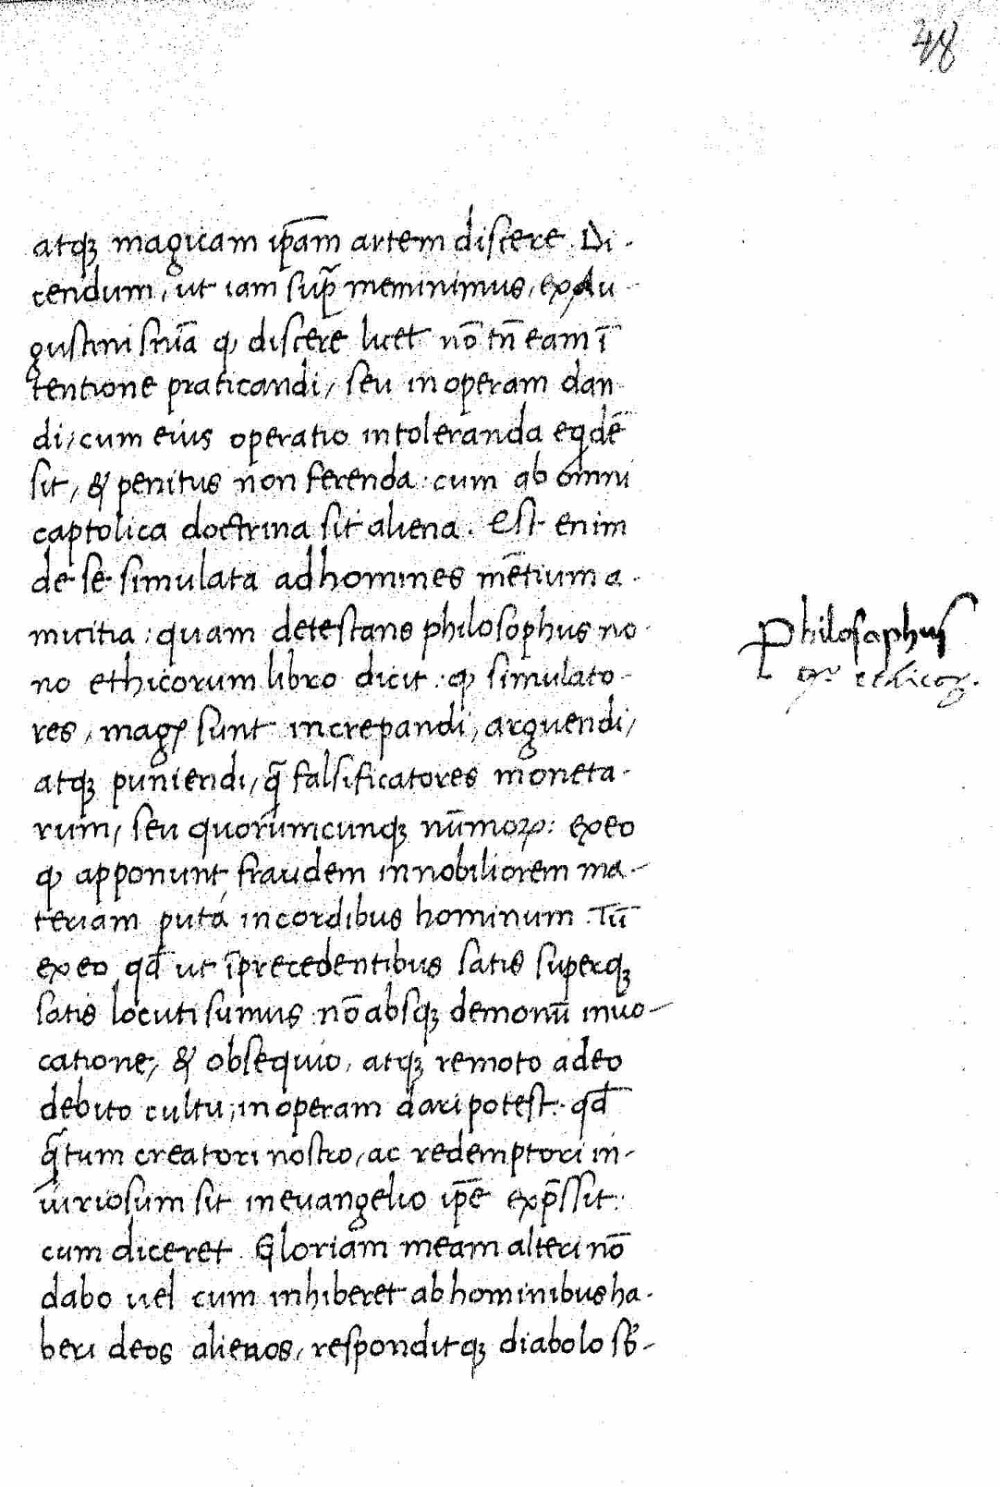 48
atqꝫ magicam ip̄am artem discere. Di-
cendum, ut iam sup̄ meminimus, ex Au
gustini sn̄ia ꝙ discere licet nō tn̄ eam ī
tentione praticandi, seu in operam dan
di, cum eius operatio intoleranda eqdē
sit, & penitus non ferenda: cum ab omni
captolica doctrina sit aliena. Est enim
de se simulata ad homines mētium a-
micitia: quam detestans philosophus no-
no ethicorum libro dicit: ꝙ simulato-
res, magꝭ sunt increpandi, arguendi,
atqꝫ puniendi, q̄ falsificatores moneta-
rum, seu quorumcunqꝫ nūmoꝝ: ex eo
ꝙ apponunt fraudem in nobiliorem ma-
teriam puta in cordibus hominum. Tū
ex eo qđ ut ī precedentibus satis superqꝫ
satis locuti sumus: nō absqꝫ demonū inuo-
catione, & obsequio, atqꝫ remoto a deo
debito cultu, in operam dari potest: qđ
q̄tum creatori nostro, ac redemptori in-
iuriosum sit in euangelio ip̄e exp̄ssit:
cum diceret. Gloriam meam alteri nō
dabo uel cum inhiberet ab hominibus ha-
beri deos alienos, responditqꝫ diabolo
Philosophus
ethicoꝝ.